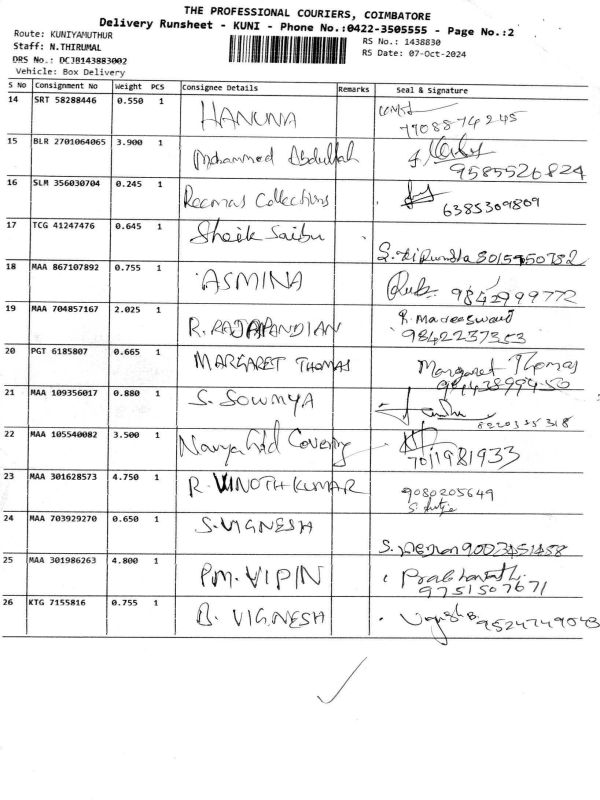 THE PROFESSIONAL COURIERS, COIMBATORE
Delivery Runsheet - KUNI - Phone No.:0422-3505555 - Page No.:2
Route: KUNIYAMUTHUR
RS No.: 1438830
Staff: N.THIRUMAL
RS Date: 07-Oct-2024
DRS No.: DCJB143883002
Vehicle: Box Delivery
S No Consignment No Weight PCS Consignee Details Remarks Seal & Signature
14 SRT 58288446 0.550 1 HANUNA
7708874245
15 BLR 2701064065 3.900 1 Mohammed Abdullah
9585526824
16 SLM 356030704 0.245 1 Reemas Collections
6385309809
17 TCG 41247476 0.645 1 Sheik Saibu
18 MAA 867107892 0.755 1 ASMINA 9842999772
19 MAA 704857167 2.025 1 R. RAJAPANDIAN R. Madeeswari
9842237353
20 PGT 6185807 0.665 1 MARGARET THOMAS Margaret Thomas
9443899450
21 MAA 109356017 0.880 1 S. SOWMYA
8220335318
22 MAA 105540082 3.500 1 Navya Gold Covering
7011981933
23 MAA 301628573 4.750 1 R. VINOTH KUMAR 9080205649
24 MAA 703929270 0.650 1 S. VIGNESH
25 MAA 301986263 4.800 1 P.M. VIPIN Prabhavathi
9751507671
26 KTG 7155816 0.755 1 B. VIGNESH Vignesh B. 9524749043